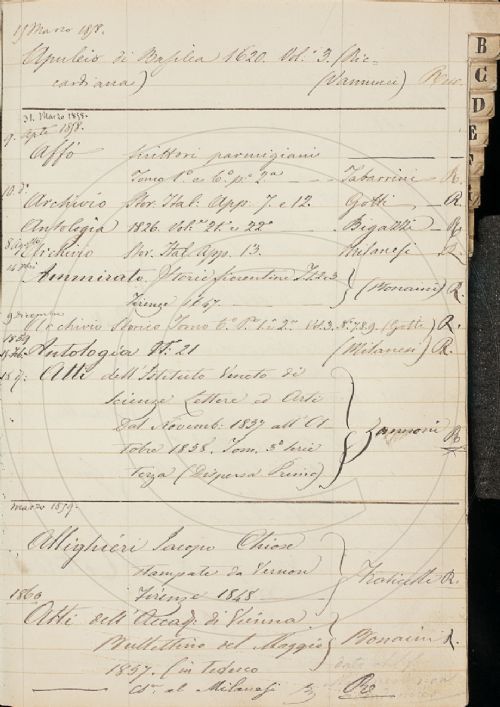 15 Marzo 1858.
Apuleio di Basilea 1620. Vol. 3. (Ric-
cardiana) (Vannucci) Ric.
31. Marzo 1858.
9. Agto 1858.
Affò Scrittori parmigiani
Tomo 1º. e 6º. p.e 2a Tabarrini R.
10 do. Archivio Stor. Ital. App. 7. e 12. Gotti R.
Antologia 1826. Voli. 21º. e 22º Bigazzi R.
Archivio Stor. Ital. App. 13. Milanesi R.
Ammirato. Istorie fiorentine T. 2. e 3
Firenze 1647. (Bonaini) R.
9 dicembre Archivio Storico Tomo 6º. Pe. 1a. 2a. Nº. 7.8.9. (Gotti) R.
1859
Antologia Nº: 21 (Milanesi) R.
Atti dell'Istituto Veneto di
Scienze Lettere ed Arti
Dal Novemb: 1857 all'Ot
tobre 1858. Tom. 3º Serie
terza (Dispensa Prima) R.
Marzo 1859.
Allighieri Jacopo Chiose
stampate da Vernon
Firenze 1848 Fraticelli R.
1860
Atti dell'Accad. di Vienna
Bullettino del Maggio Bonaini R.
1857. (in tedesco
al Milanesi Re
B
C
D
E
F